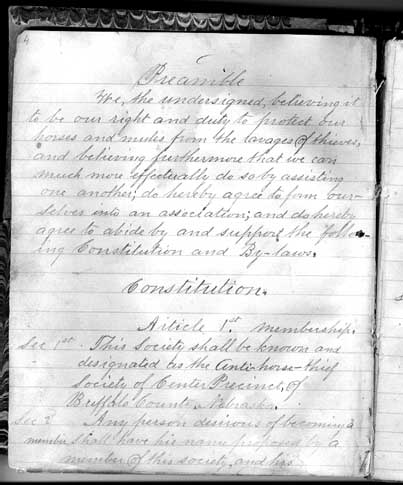 4
Preamible
We, the undersigned, believing it
to be our right and duty to protect our
horses and mules from the ravages of thieves,
and believing furthermore that we can
much more effecterally do so by assisting
one another; do hereby agree to form our-
selves into an association; and do hereby
agree to abide by and support the follow-
ing Constitution and By-laws.
Constitution.
Article 1st. membership.
Sec 1st. This Society shall be known and
designated as the Anti-horse-thief
Society of Center Precinct, of
Buffalo County, Nebraska.
Sec 2 Any person desirous of becoming a
member shall have his name proposed by a
member of this society, and his